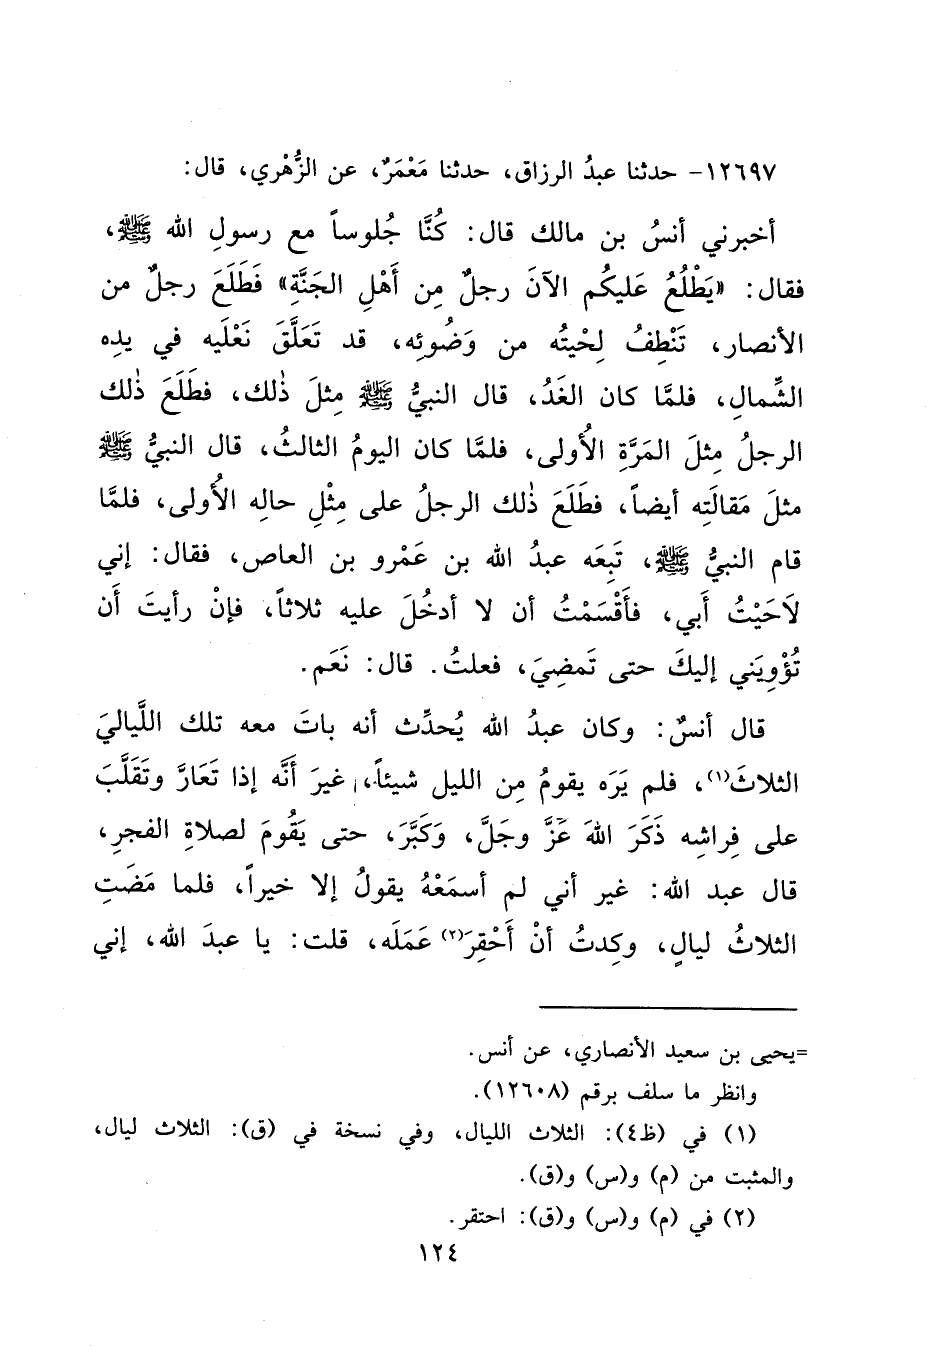 ١٢٦٩٧- حدثنا عبدُ الرزاق، حدثنا مَعْمَرٌ، عن الزُّهْري، قال:
أخبرني أنسُ بن مالك قال: كُنَّا جُلوساً مع رسولِ الله ﷺ،
فقال: «يَطْلُعُ عَليكُم الآنَ رجلٌ مِن أَهْلِ الجَنَّةِ» فَطَلَعَ رجلٌ من
الأنصار، تَنْطِفُ لِحْيتُه من وَضُوئِه، قد تَعَلَّقَ نَعْلَيه في يدِه
الشِّمالِ، فلمَّا كان الغَدُ، قال النبيُّ ﷺ مِثلَ ذٰلك، فطَلَعَ ذٰلك
الرجلُ مِثلَ المَرَّةِ الأُولى، فلمَّا كان اليومُ الثالثُ، قال النبيُّ ﷺ
مثلَ مَقالَتِه أيضاً، فطَلَعَ ذٰلك الرجلُ على مِثْلِ حالِه الأُولى، فلمَّا
قام النبيُّ ﷺ، تَبِعَه عبدُ الله بن عَمْرو بن العاص، فقال: إني
لَاحَيْتُ أَبي، فأَقْسَمْتُ أن لا أدخُلَ عليه ثلاثاً، فإنْ رأيتَ أَن
تُؤْوِيَني إليكَ حتى تَمضِيَ، فعلتُ. قال: نَعَم.
قال أنسٌ: وكان عبدُ الله يُحدِّث أنه باتَ معه تلك اللَّياليَ
الثلاثَ(١)، فلم يَرَه يقومُ مِن الليل شيئاً، غيرَ أَنَّه إذا تَعَارَّ وتَقَلَّبَ
على فِراشِه ذَكَرَ اللهَ عَزَّ وجَلَّ، وَكَبَّرَ، حتى يَقُومَ لصلاةِ الفجرِ،
قال عبد الله: غير أني لم أسمَعْهُ يقولُ إلا خيراً، فلما مَضَتِ
الثلاثُ ليالٍ، وكِدتُ أنْ أَحْقِرَ(٢) عَمَلَه، قلت: يا عبدَ الله، إني
=يحيى بن سعيد الأنصاري، عن أنس.
وانظر ما سلف برقم (١٢٦٠٨).
(١) في (ظ٤): الثلاث الليال، وفي نسخة في (ق): الثلاث ليال،
والمثبت من (م) و(س) و(ق).
(٢) في (م) و(س) و(ق): احتقر.
١٢٤